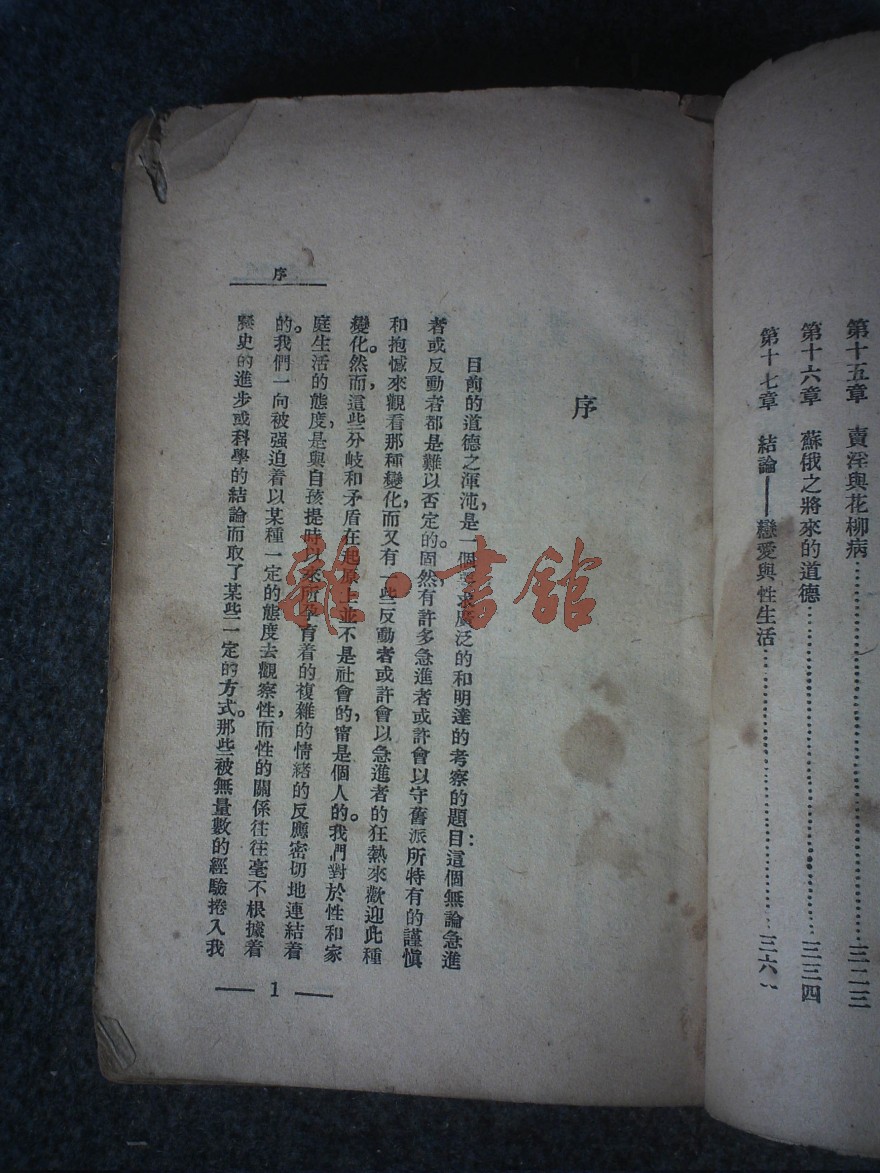 第十五章 賣淫與花柳病……三二三
第十六章 蘇俄之將來的道德……三三四
第十七章 結論——戀愛與性生活……三六
序
目前的道德之渾沌,是一個要求廣泛的和明達的考察的題目:這個無論急進
者或反動者都是難以否定的。固然有許多急進者或許會以守舊派所特有的謹愼
和抱憾來觀看那種變化,而又有一些反動者或許會以急進者的狂熱來歡迎此種
變化。然而,這些分歧和矛盾在起原上並不是社會的,甯是個人的。我們對於性和家
庭生活的態度,是與自孩提時以來所孕育着的複雜的情緒的反應密切地連結着
的。我們一向被强迫着以某種一定的態度去觀察性,而性的關係往往毫不根據着
歷史的進步或科學的結論而取了某些一定的方式。那些被無量數的經驗捲入我
序
— 1 —
雜·書館